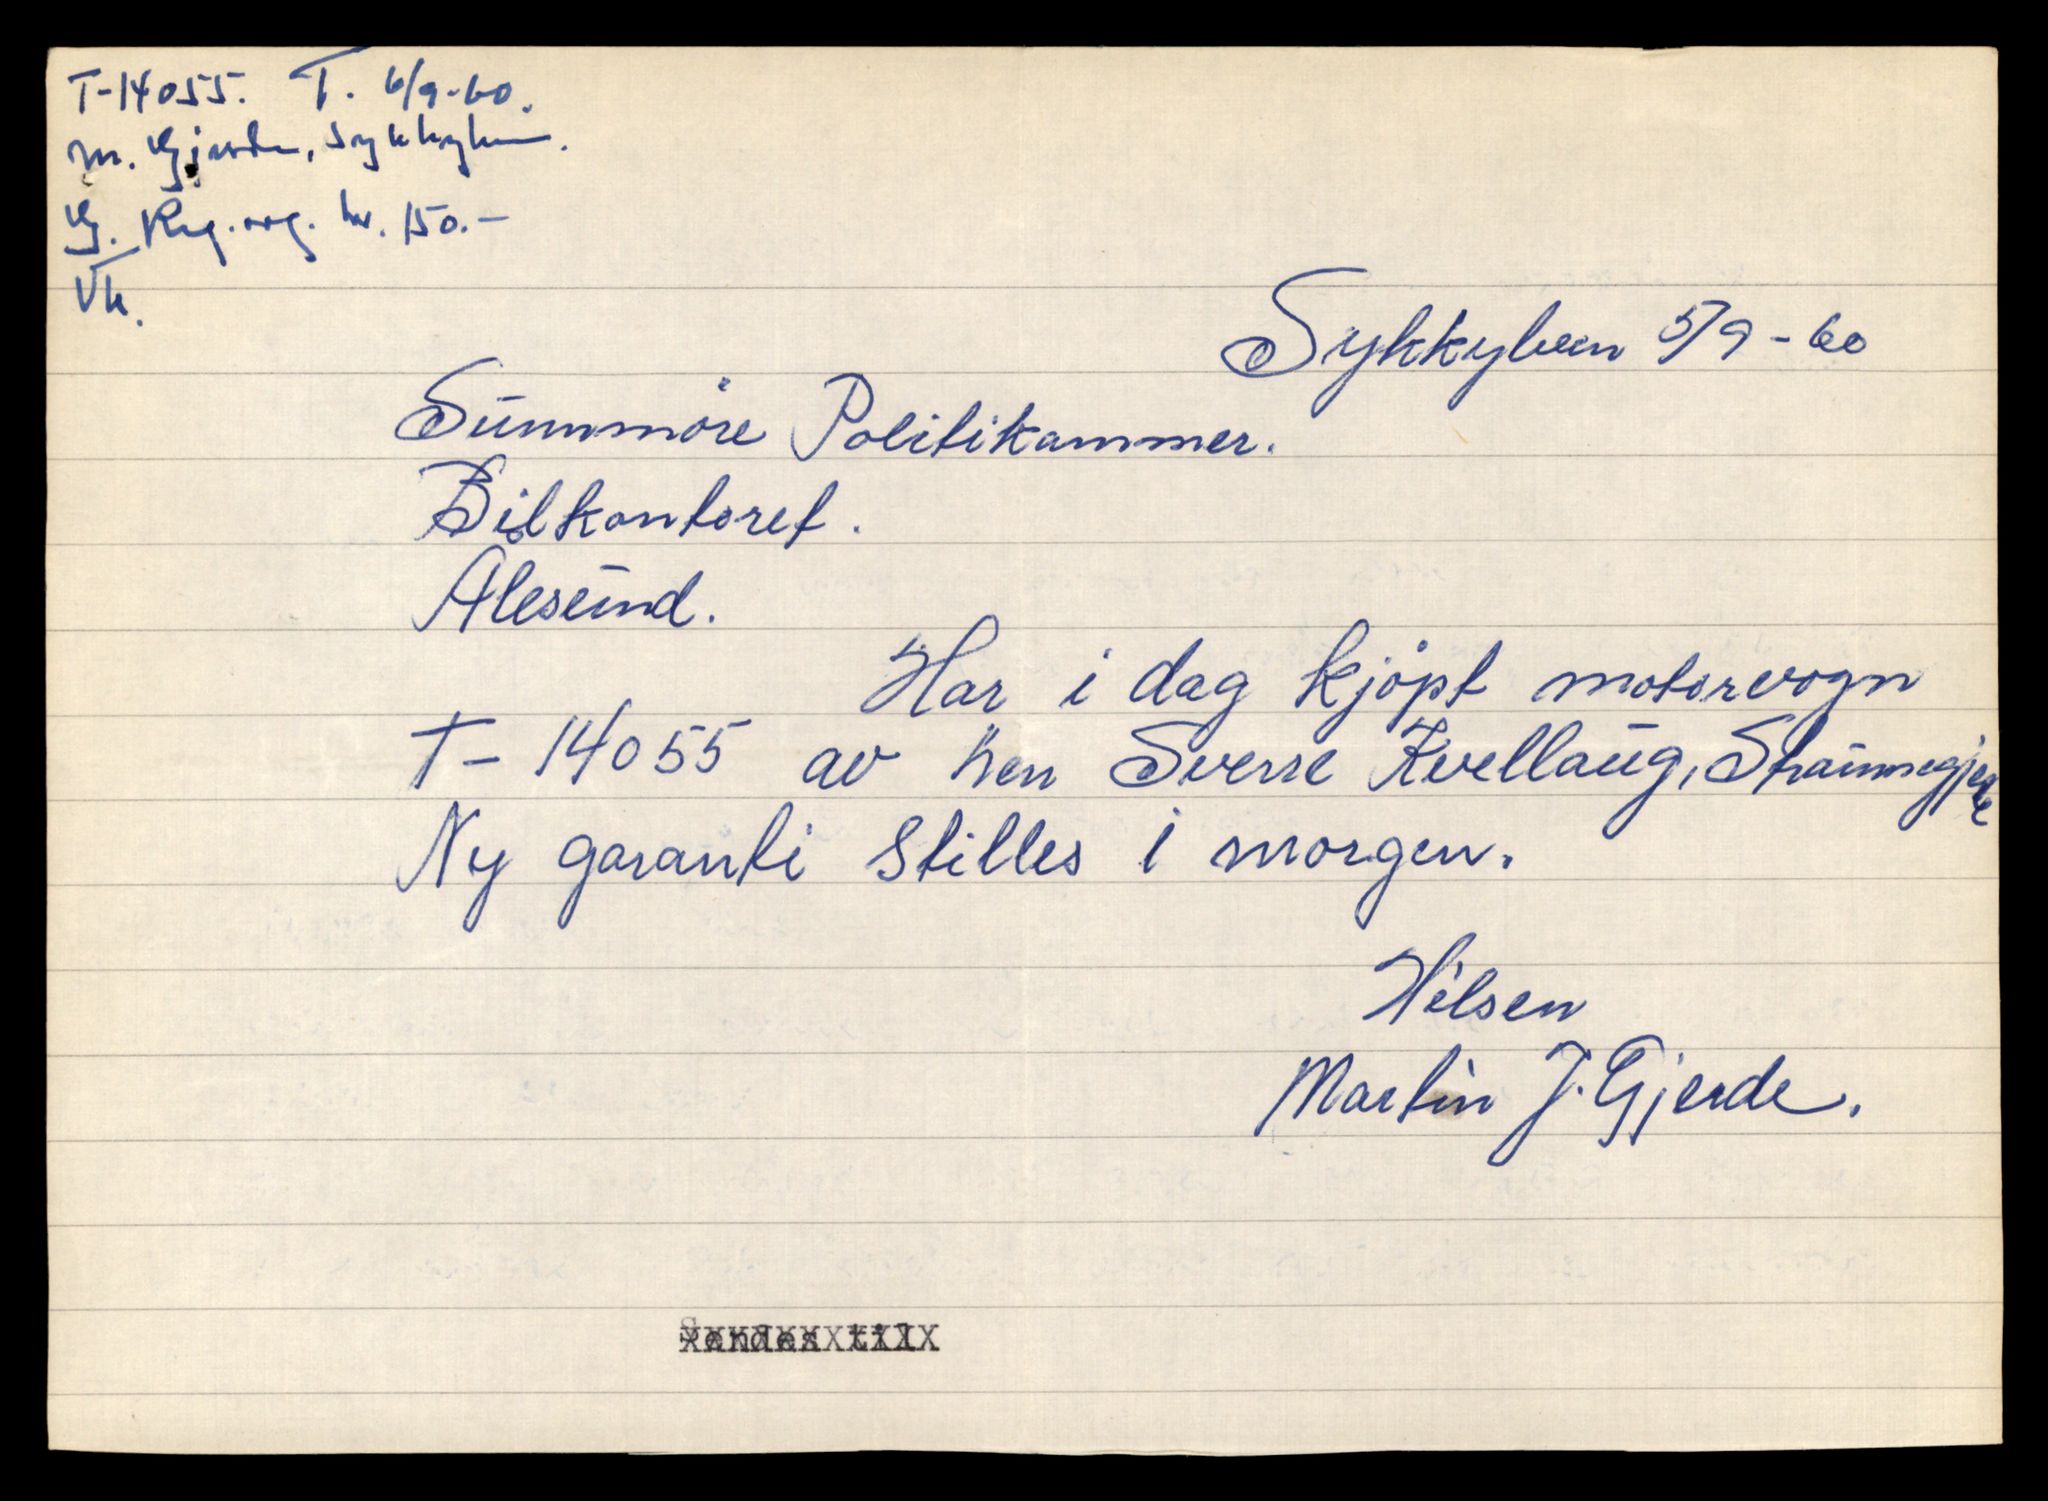 T-14055. T. 6/9-60.
M. Gjerde, Sykkylven.
G. Reg. avg. kr. 150.-
Vk.
Sykkylven 5/9-60
Sunnmöre Politikammer.
Bilkontoret.
Alesund.
Har i dag kjöpt motorvogn
T-14055 av hen Sverre Kvellaug, Straumegjerde
Ny garanti stilles i morgen.
Hilsen
Martin J. Gjerde.
Sendes til